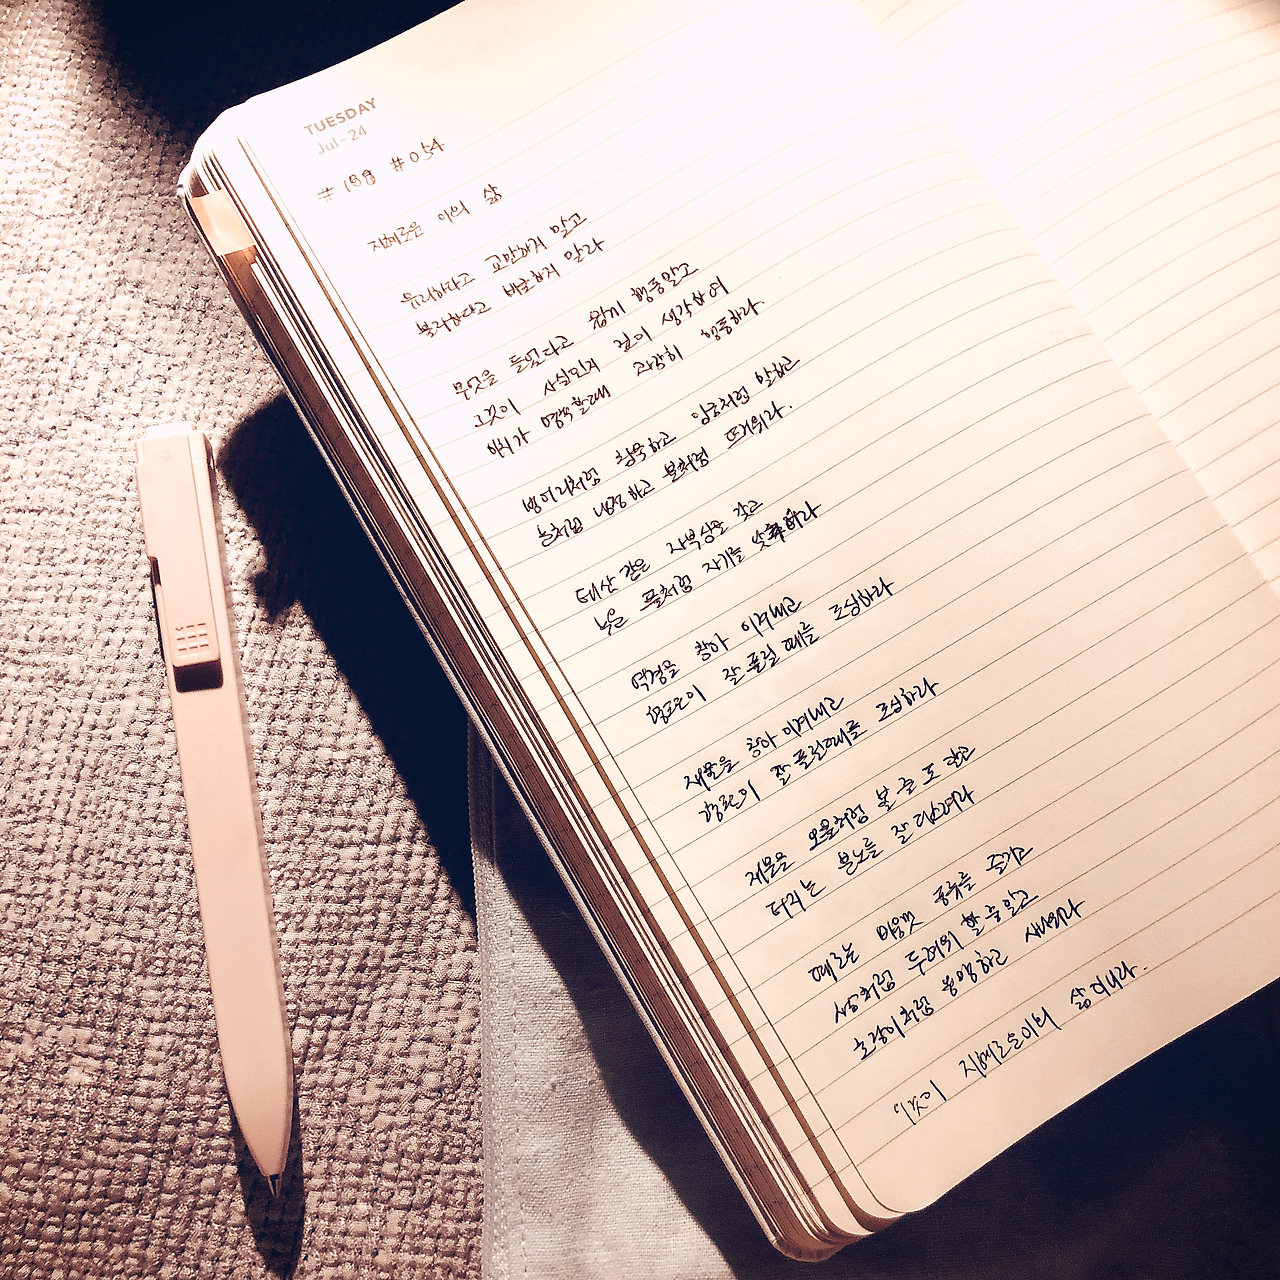 TUESDAY
Jul-24
# 188 #054
지혜로운 이의 삶
유리하다고 교만하지 말고
불리하다고 비굴하지 말라
무엇을 들었다고 쉽게 행동말고
그것이 사실인지 깊이 생각하여
이치가 명확할때 과감히 행동하라.
벙어리처럼 침묵하고 임금처럼 말하고
눈처럼 냉정하고 불처럼 뜨거워라.
태산 같은 자부심을 갖고
누운 풀처럼 자기를 낮추어라
역경을 참아 이겨내고
형편이 잘 풀릴 때를 조심하라
재물을 참아 이겨내고
형편이 잘 풀릴때를 조심하라
재물을 오물처럼 볼 줄도 알고
터지는 분노를 잘 다스려라
때로는 마음껏 풍류를 즐기고
사슴처럼 두려워 할 줄 알고
호랑이처럼 용맹하고 사나워라
이것이 지혜로운이의 삶이니라.